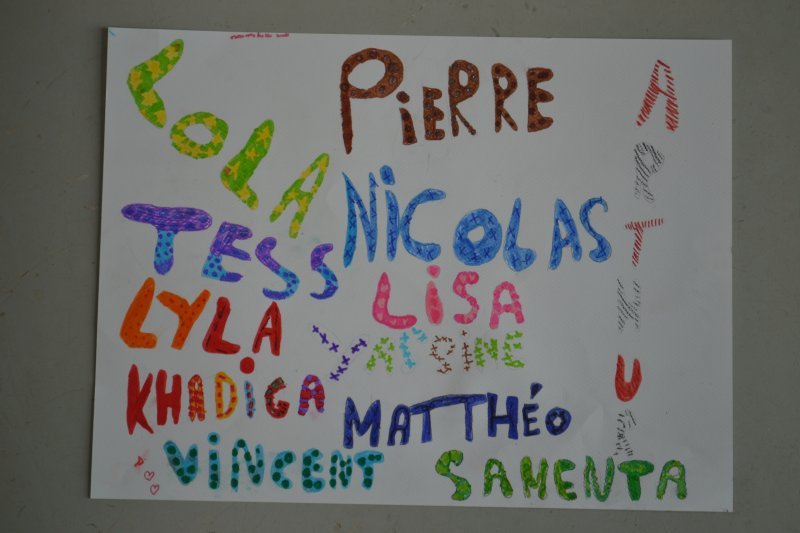 LOLA
PiERRE
ARTHUR
NiCOLAS
TESS
LiSA
LYLA
YASSINE
KHADiGA
MATTHéO
ViNCENT
SAMENTA